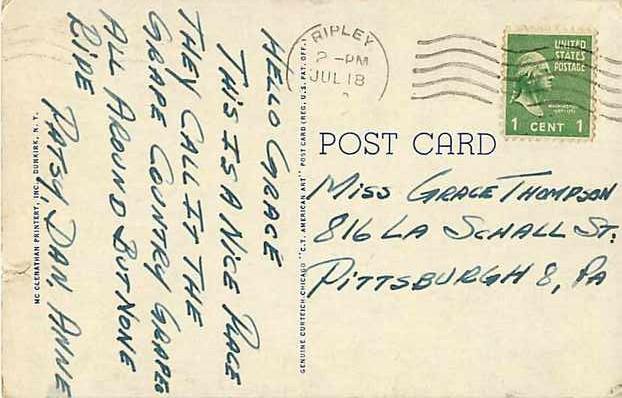 HELLO GRACE
THIS IS A NICE PLACE
THEY CALL IT THE
GRAPE COUNTRY GRAPES
ALL AROUND BUT NONE
RIPE
PATSY, DAN, ANNE
MC CLENATHAN PRINTERY, INC., DUNKIRK, N. Y.
GENUINE CURTEICH-CHICAGO "C.T. AMERICAN ART" POST CARD (REG. U.S. PAT. OFF.)
RIPLEY
2-PM
JUL 18
UNITED
STATES
POSTAGE
WASHINGTON
1 CENT 1
POST CARD
MISS GRACE THOMPSON
816 LA SCHALL ST.
PITTSBURGH 8, PA